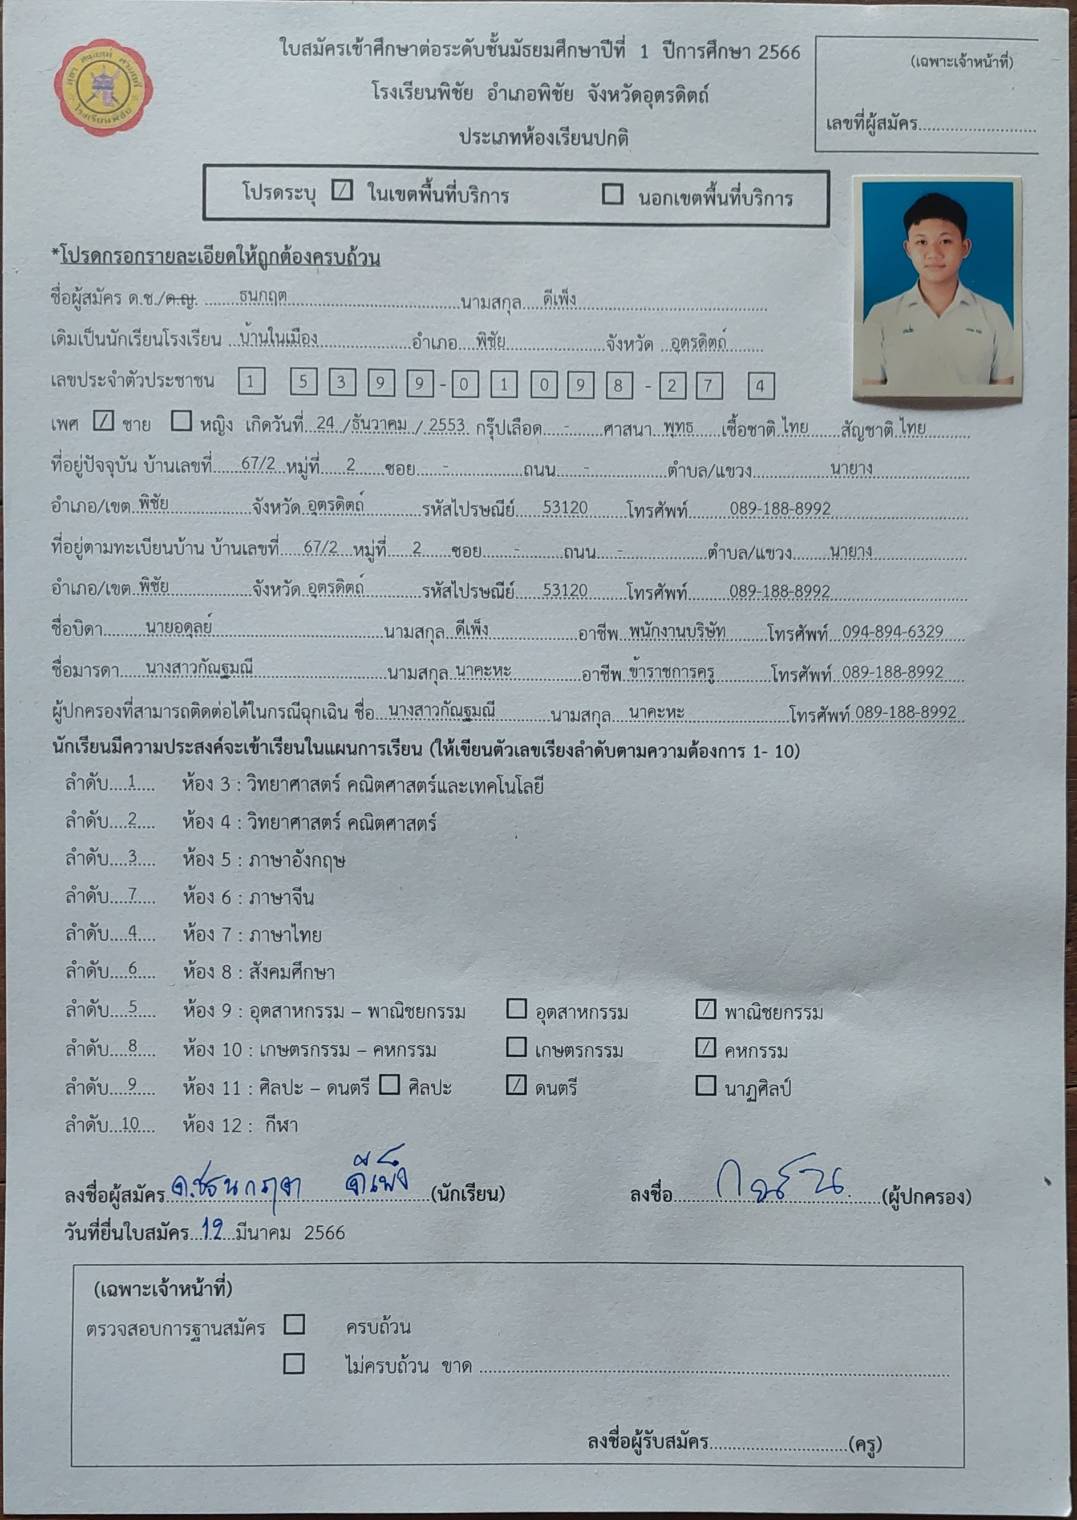 ใบสมัครเข้าศึกษาต่อระดับชั้นมัธยมศึกษาปีที่ 1 ปีการศึกษา 2566
(เฉพาะเจ้าหน้าที่)
โรงเรียนพิชัย อำเภอพิชัย จังหวัดอุตรดิตถ์
เลขที่ผู้สมัคร
ประเภทห้องเรียนปกติ
โรงเรียนพิชัย
โปรดระบุ ☑ ในเขตพื้นที่บริการ ☐ นอกเขตพื้นที่บริการ
*โปรดกรอกรายละเอียดให้ถูกต้องครบถ้วน
ชื่อผู้สมัคร ด.ช./ด.ญ. ธนกฤต นามสกุล ดีเพ็ง
เดิมเป็นนักเรียนโรงเรียน บ้านในเมือง อำเภอ พิชัย จังหวัด อุตรดิตถ์
เลขประจำตัวประชาชน 1 5 3 9 9 - 0 1 0 9 8 - 2 7 4
เพศ ☑ ชาย ☐ หญิง เกิดวันที่ 24 / ธันวาคม / 2553 กรุ๊ปเลือด - ศาสนา พุทธ เชื้อชาติ ไทย สัญชาติ ไทย
ที่อยู่ปัจจุบัน บ้านเลขที่ 67/2 หมู่ที่ 2 ซอย - ถนน - ตำบล/แขวง นายาง
อำเภอ/เขต พิชัย จังหวัด อุตรดิตถ์ รหัสไปรษณีย์ 53120 โทรศัพท์ 089-188-8992
ที่อยู่ตามทะเบียนบ้าน บ้านเลขที่ 67/2 หมู่ที่ 2 ซอย - ถนน - ตำบล/แขวง นายาง
อำเภอ/เขต พิชัย จังหวัด อุตรดิตถ์ รหัสไปรษณีย์ 53120 โทรศัพท์ 089-188-8992
ชื่อบิดา นายอดุลย์ นามสกุล ดีเพ็ง อาชีพ พนักงานบริษัท โทรศัพท์ 094-894-6329
ชื่อมารดา นางสาวกัณฐมณี นามสกุล นาคะหะ อาชีพ ข้าราชการครู โทรศัพท์ 089-188-8992
ผู้ปกครองที่สามารถติดต่อได้ในกรณีฉุกเฉิน ชื่อ นางสาวกัณฐมณี นามสกุล นาคะหะ โทรศัพท์ 089-188-8992
นักเรียนมีความประสงค์จะเข้าเรียนในแผนการเรียน (ให้เขียนตัวเลขเรียงลำดับตามความต้องการ 1- 10)
ลำดับ 1 ห้อง 3 : วิทยาศาสตร์ คณิตศาสตร์และเทคโนโลยี
ลำดับ 2 ห้อง 4 : วิทยาศาสตร์ คณิตศาสตร์
ลำดับ 3 ห้อง 5 : ภาษาอังกฤษ
ลำดับ 7 ห้อง 6 : ภาษาจีน
ลำดับ 4 ห้อง 7 : ภาษาไทย
ลำดับ 6 ห้อง 8 : สังคมศึกษา
ลำดับ 5 ห้อง 9 : อุตสาหกรรม – พาณิชยกรรม ☐ อุตสาหกรรม ☑ พาณิชยกรรม
ลำดับ 8 ห้อง 10 : เกษตรกรรม – คหกรรม ☐ เกษตรกรรม ☑ คหกรรม
ลำดับ 9 ห้อง 11 : ศิลปะ – ดนตรี ☐ ศิลปะ ☑ ดนตรี ☐ นาฏศิลป์
ลำดับ 10 ห้อง 12 : กีฬา
ลงชื่อผู้สมัคร ด.ช.ธนกฤต ดีเพ็ง (นักเรียน) ลงชื่อ (ผู้ปกครอง)
วันที่ยื่นใบสมัคร 12 มีนาคม 2566
(เฉพาะเจ้าหน้าที่)
ตรวจสอบการฐานสมัคร ☐ ครบถ้วน
☐ ไม่ครบถ้วน ขาด
ลงชื่อผู้รับสมัคร (ครู)